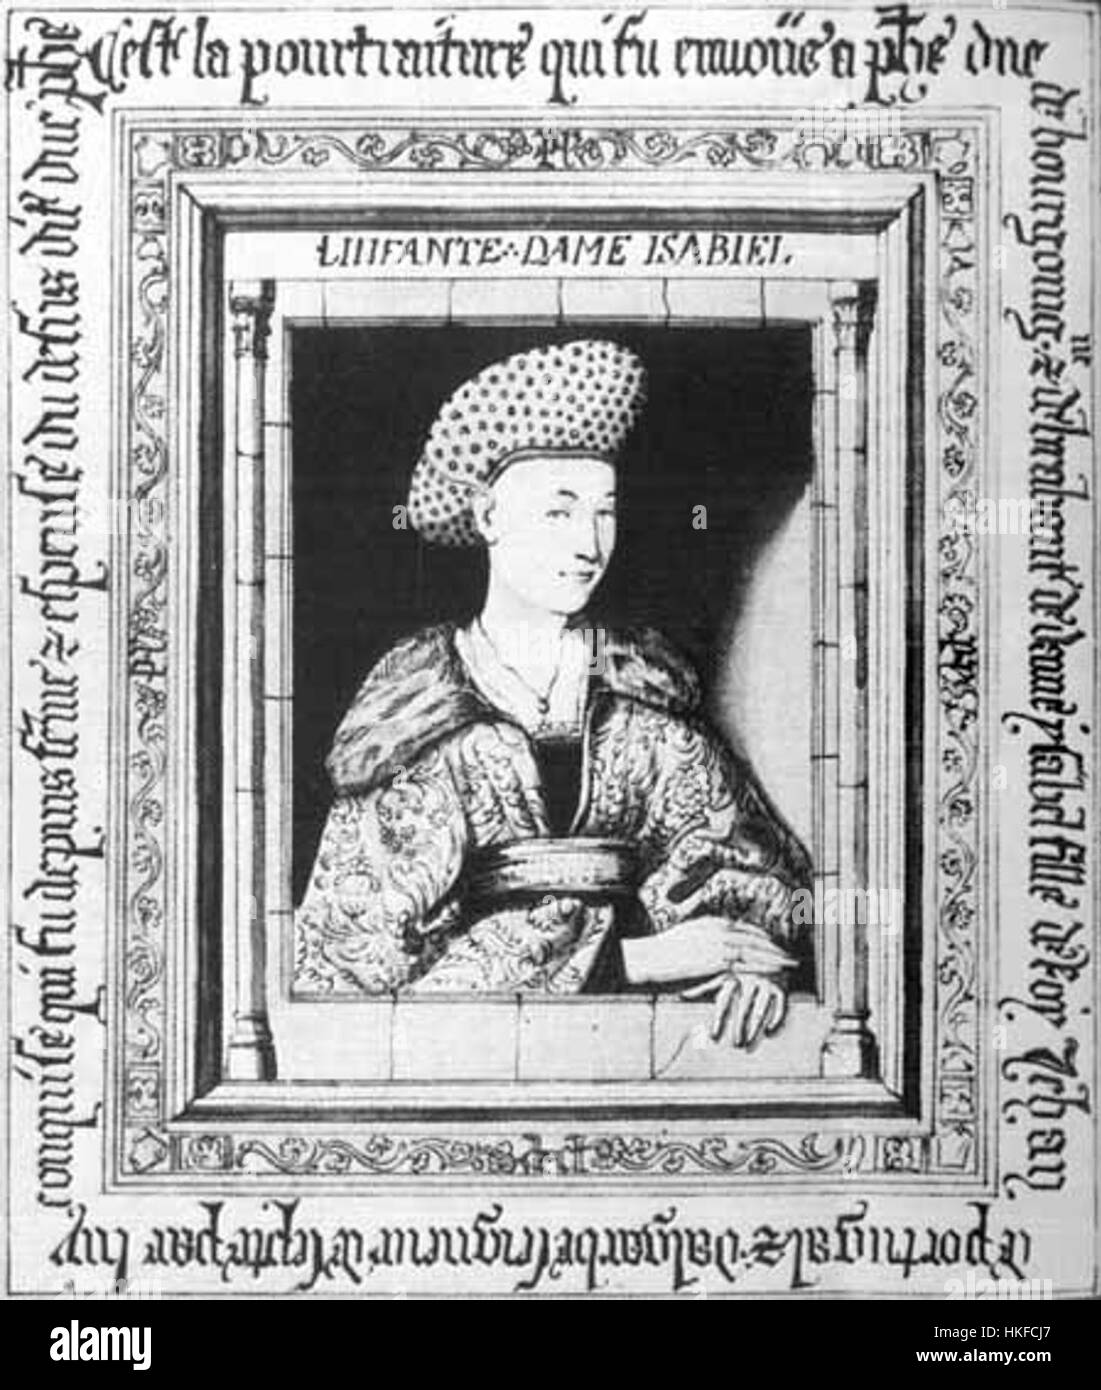 Cest la pourtraiture qui fu envoiie a phe duc
de bourgoingne & de brabant de dame ysabel fille de Roy Jehan
de portugal & dalgarbe seigneur de septe par luy
conquise qui fu depuis feme & espeuse du desus dit duc phe
LINFANTE DAME ISABIEL.
alamy
Image ID: HKFCJ7
www.alamy.com